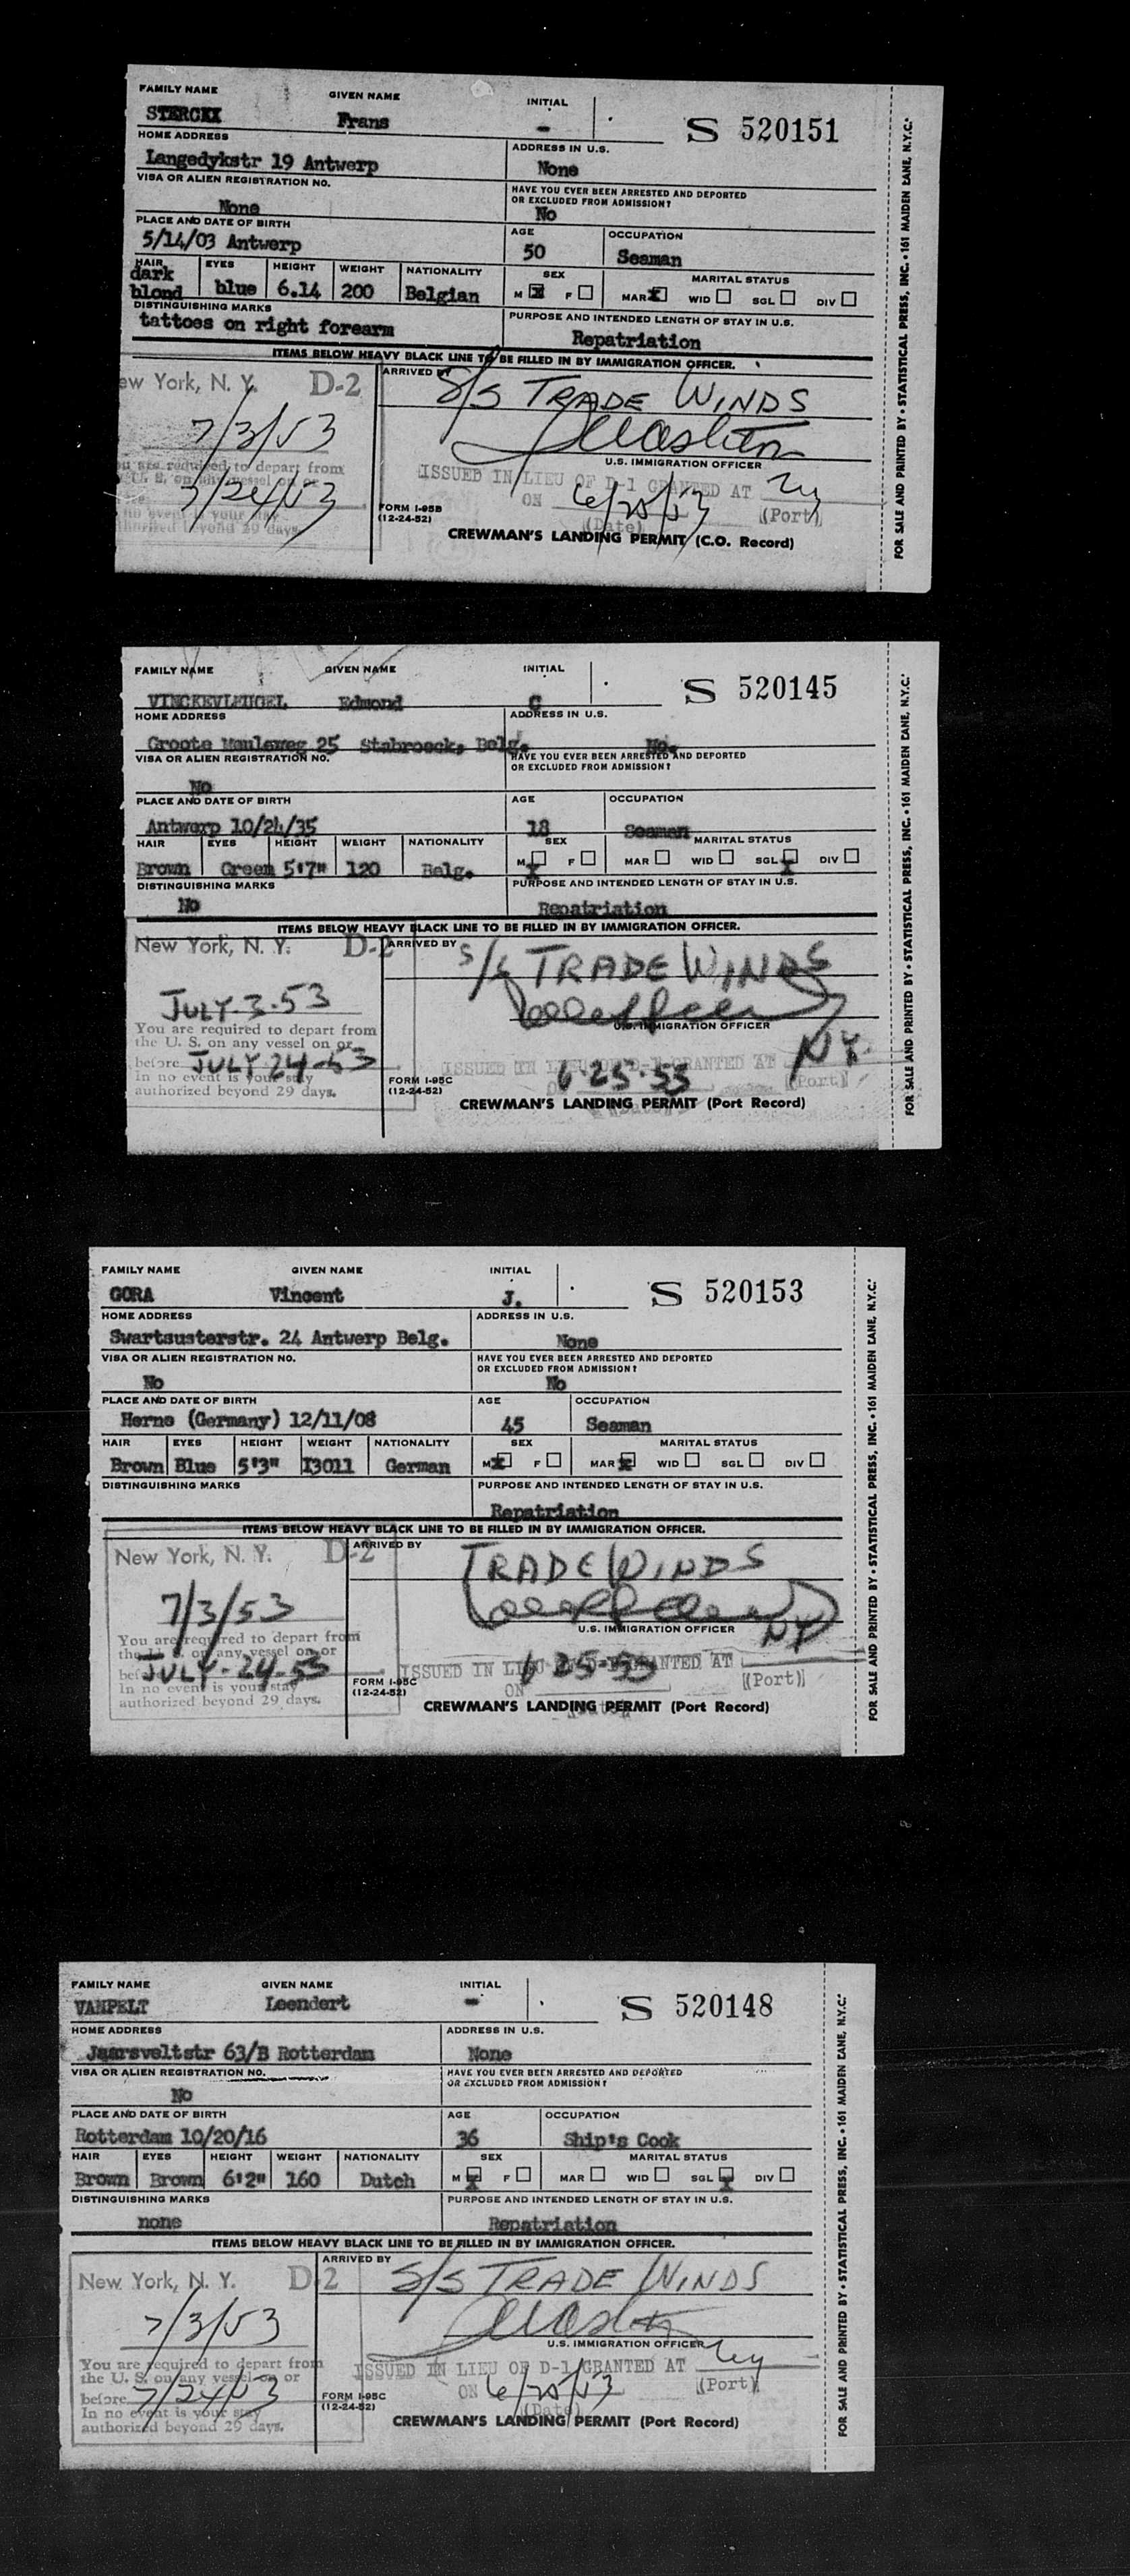 FAMILY NAME GIVEN NAME INITIAL
STERCKX Frans - S 520151
HOME ADDRESS ADDRESS IN U.S.
Langedykstr 19 Antwerp None
VISA OR ALIEN REGISTRATION NO. HAVE YOU EVER BEEN ARRESTED AND DEPORTED
OR EXCLUDED FROM ADMISSION?
None No
PLACE AND DATE OF BIRTH AGE OCCUPATION
5/14/03 Antwerp 50 Seaman
HAIR EYES HEIGHT WEIGHT NATIONALITY SEX MARITAL STATUS
dark
blond blue 6.14 200 Belgian M X F MAR X WID SGL DIV
DISTINGUISHING MARKS PURPOSE AND INTENDED LENGTH OF STAY IN U.S.
tattoes on right forearm Repatriation
ITEMS BELOW HEAVY BLACK LINE TO BE FILLED IN BY IMMIGRATION OFFICER.
ew York, N. Y. D-2 ARRIVED BY S/S TRADE WINDS
7/3/53
U.S. IMMIGRATION OFFICER
u are required to depart from
U. S. on any vessel on or
7/24/53
no event is your stay
authorized beyond 29 days
ISSUED IN LIEU OF D-1 GRANTED AT NY
ON 6/25/53 (Port)
(Date)
FORM I-95B
(12-24-52)
CREWMAN'S LANDING PERMIT (C.O. Record)
FOR SALE AND PRINTED BY • STATISTICAL PRESS, INC. • 161 MAIDEN LANE, N.Y.C.
FAMILY NAME GIVEN NAME INITIAL
VINCKEVLEUGEL Edmond C S 520145
HOME ADDRESS ADDRESS IN U.S.
Groote Meuleweg 25 Stabroeck, Belg. No.
VISA OR ALIEN REGISTRATION NO. HAVE YOU EVER BEEN ARRESTED AND DEPORTED
OR EXCLUDED FROM ADMISSION?
No
PLACE AND DATE OF BIRTH AGE OCCUPATION
Antwerp 10/24/35 18 Seaman
HAIR EYES HEIGHT WEIGHT NATIONALITY SEX MARITAL STATUS
Brown Green 5'7" 120 Belg. M X F MAR WID SGL X DIV
DISTINGUISHING MARKS PURPOSE AND INTENDED LENGTH OF STAY IN U.S.
No Repatriation
ITEMS BELOW HEAVY BLACK LINE TO BE FILLED IN BY IMMIGRATION OFFICER.
New York, N. Y. D-2 ARRIVED BY S/S TRADE WINDS
JULY-3-53
U.S. IMMIGRATION OFFICER
You are required to depart from
the U. S. on any vessel on or
before JULY 24-53
In no event is your stay
authorized beyond 29 days.
ISSUED IN LIEU OF D-1 GRANTED AT NY.
6-25-53 (Port)
FORM I-95C
(12-24-52)
CREWMAN'S LANDING PERMIT (Port Record)
FOR SALE AND PRINTED BY • STATISTICAL PRESS, INC. • 161 MAIDEN LANE, N.Y.C.
FAMILY NAME GIVEN NAME INITIAL
GORA Vincent J. S 520153
HOME ADDRESS ADDRESS IN U.S.
Swartsusterstr. 24 Antwerp Belg. None
VISA OR ALIEN REGISTRATION NO. HAVE YOU EVER BEEN ARRESTED AND DEPORTED
OR EXCLUDED FROM ADMISSION?
No No
PLACE AND DATE OF BIRTH AGE OCCUPATION
Herne (Germany) 12/11/08 45 Seaman
HAIR EYES HEIGHT WEIGHT NATIONALITY SEX MARITAL STATUS
Brown Blue 5'3" I3011 German M X F MAR X WID SGL DIV
DISTINGUISHING MARKS PURPOSE AND INTENDED LENGTH OF STAY IN U.S.
Repatriation
ITEMS BELOW HEAVY BLACK LINE TO BE FILLED IN BY IMMIGRATION OFFICER.
New York, N. Y. D-2 ARRIVED BY TRADE WINDS
7/3/53
U.S. IMMIGRATION OFFICER
You are required to depart from
the U. S. on any vessel on or
before JULY-24-53
In no event is your stay
authorized beyond 29 days.
ISSUED IN LIEU OF D-1 GRANTED AT NY
ON 6-25-53 (Port)
FORM I-95C
(12-24-52)
CREWMAN'S LANDING PERMIT (Port Record)
FOR SALE AND PRINTED BY • STATISTICAL PRESS, INC. • 161 MAIDEN LANE, N.Y.C.
FAMILY NAME GIVEN NAME INITIAL
VANPELT Leendert - S 520148
HOME ADDRESS ADDRESS IN U.S.
Jaarsveltstr 63/B Rotterdam None
VISA OR ALIEN REGISTRATION NO. HAVE YOU EVER BEEN ARRESTED AND DEPORTED
OR EXCLUDED FROM ADMISSION?
No
PLACE AND DATE OF BIRTH AGE OCCUPATION
Rotterdam 10/20/16 36 Ship's Cook
HAIR EYES HEIGHT WEIGHT NATIONALITY SEX MARITAL STATUS
Brown Brown 6'2" 160 Dutch M X F MAR WID SGL X DIV
DISTINGUISHING MARKS PURPOSE AND INTENDED LENGTH OF STAY IN U.S.
none Repatriation
ITEMS BELOW HEAVY BLACK LINE TO BE FILLED IN BY IMMIGRATION OFFICER.
New York, N. Y. D-2 ARRIVED BY S/S TRADE WINDS
7/3/53
U.S. IMMIGRATION OFFICER
You are required to depart from
the U. S. on any vessel on or
before 7/24/53
In no event is your stay
authorized beyond 29 days.
ISSUED IN LIEU OF D-1 GRANTED AT NY
ON 6/25/53 (Port)
(Date)
FORM I-95C
(12-24-52)
CREWMAN'S LANDING PERMIT (Port Record)
FOR SALE AND PRINTED BY • STATISTICAL PRESS, INC. • 161 MAIDEN LANE, N.Y.C.